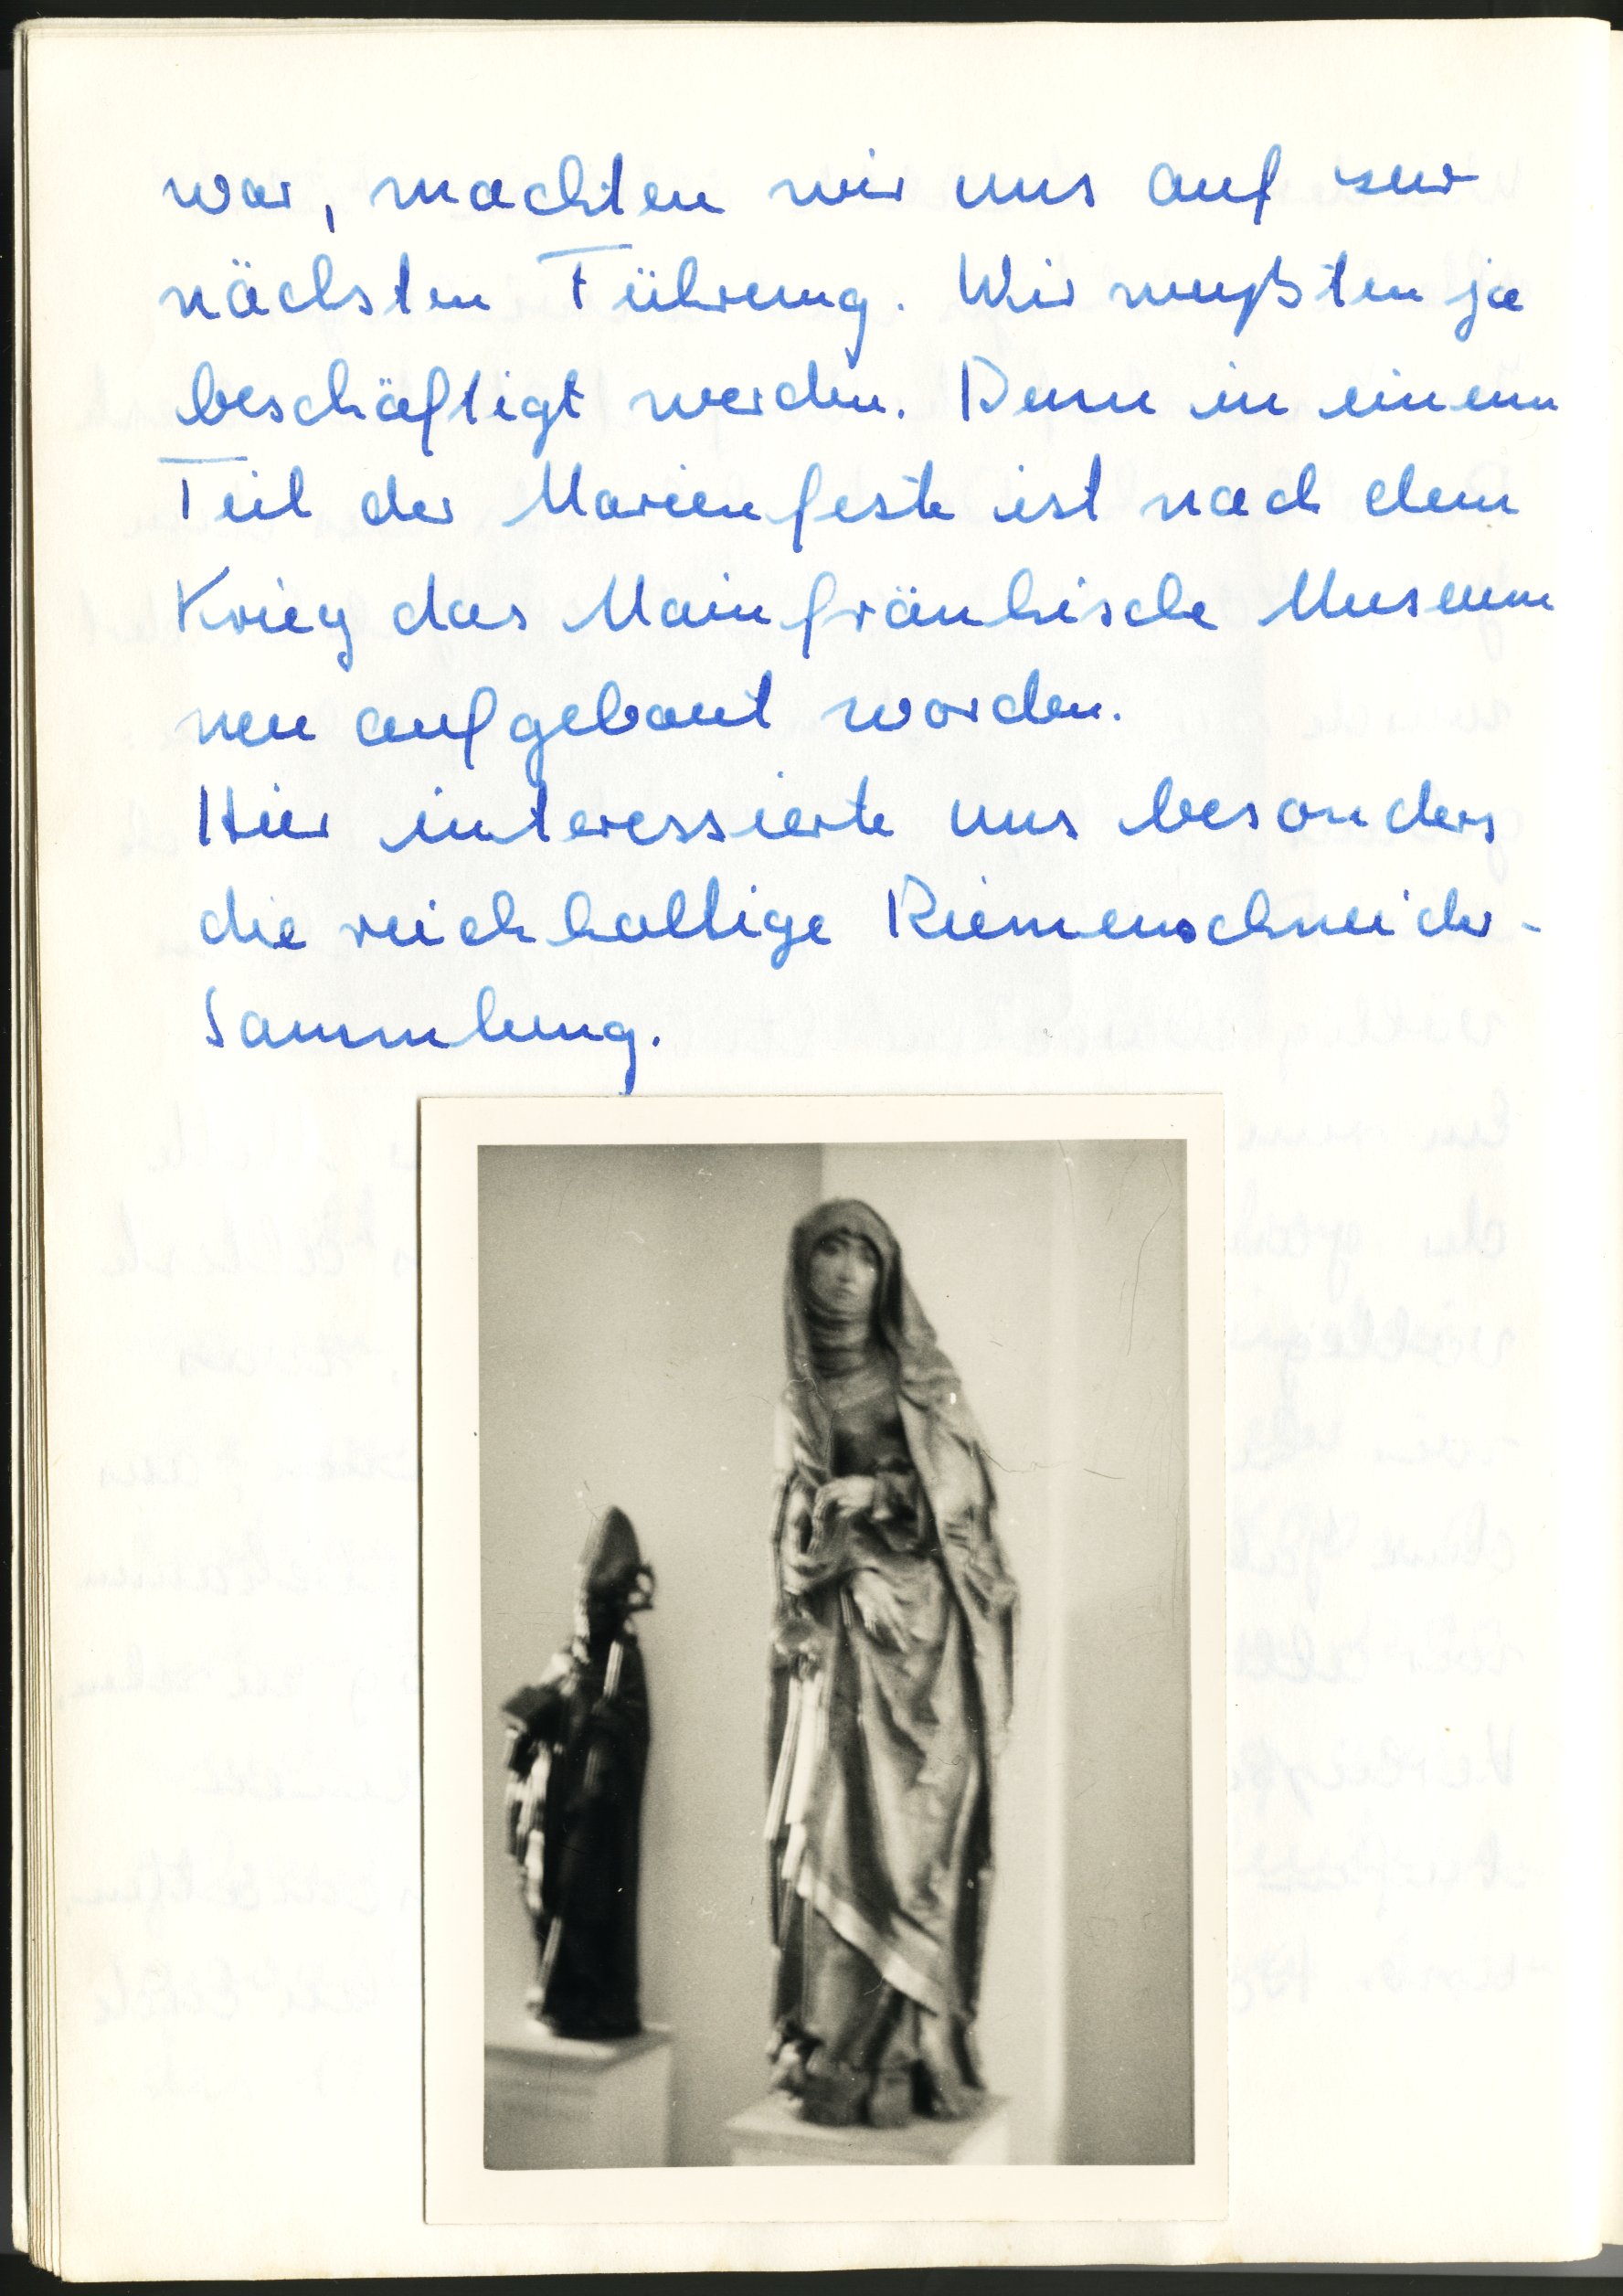 war, machten wir uns auf zur
nächsten Führung. Wir mußten ja
beschäftigt werden. Denn in einem
Teil der Marienfeste ist nach dem
Krieg das Mainfränkische Museum
neu aufgebaut worden.
Hier interessierte uns besonders
die reichhaltige Riemenschneider-
Sammlung.